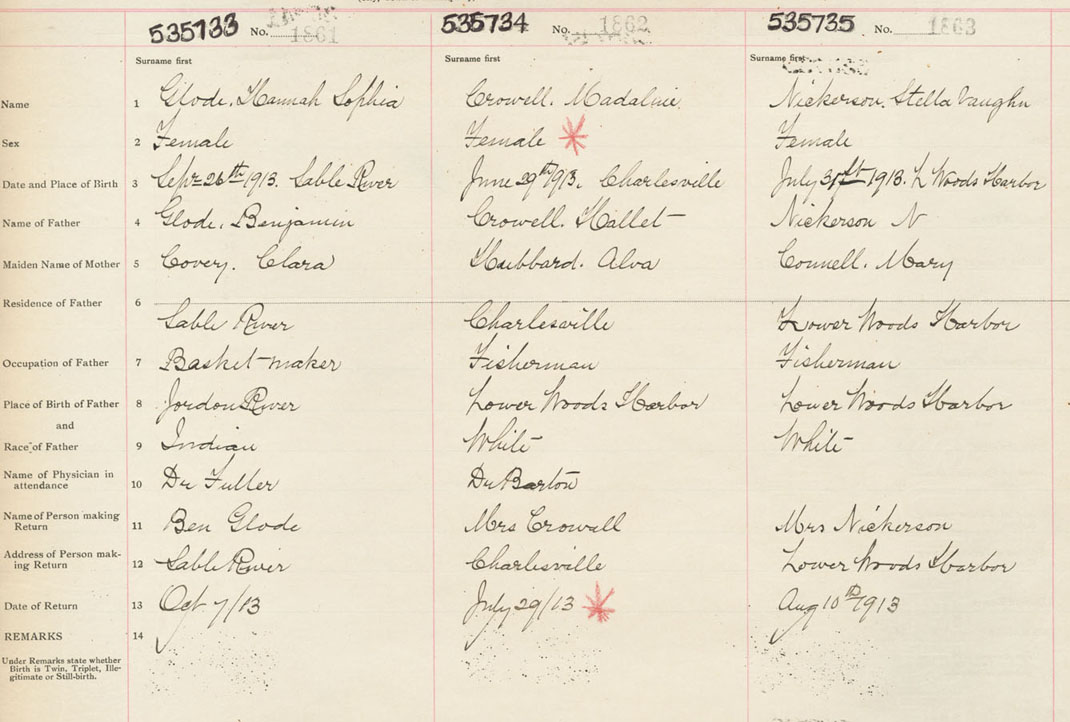 535733 No. 1861 535734 No. 1862 535735 No. 1863
Surname first Surname first Surname first
Name 1 Glode, Hannah Sophia Crowell. Madaline Nickerson. Stella Vaughn
Sex 2 Female Female Female
Date and Place of Birth 3 Sept 26th 1913. Sable River June 29th 1913. Charlesville July 31st 1913. L Woods Harbor
Name of Father 4 Glode, Benjamin Crowell. Hallet Nickerson N
Maiden Name of Mother 5 Covey. Clara Hubbard. Alva Connell. Mary
Residence of Father 6
Sable River Charlesville Lower Woods Harbor
Occupation of Father 7 Basket-maker Fisherman Fisherman
Place of Birth of Father 8 Jordon River Lower Woods Harbor Lower Woods Harbor
and
Race of Father 9 Indian White White
Name of Physician in
attendance 10 Dr Fuller Dr Barton
Name of Person making
Return 11 Ben Glode Mrs Crowell Mrs Nickerson
Address of Person mak-
ing Return 12 Sable River Charlesville Lower Woods Harbor
Date of Return 13 Oct 7/13 July 29/13 Aug 10th 1913
REMARKS 14
Under Remarks state whether
Birth is Twin, Triplet, Ille-
gitimate or Still-birth.